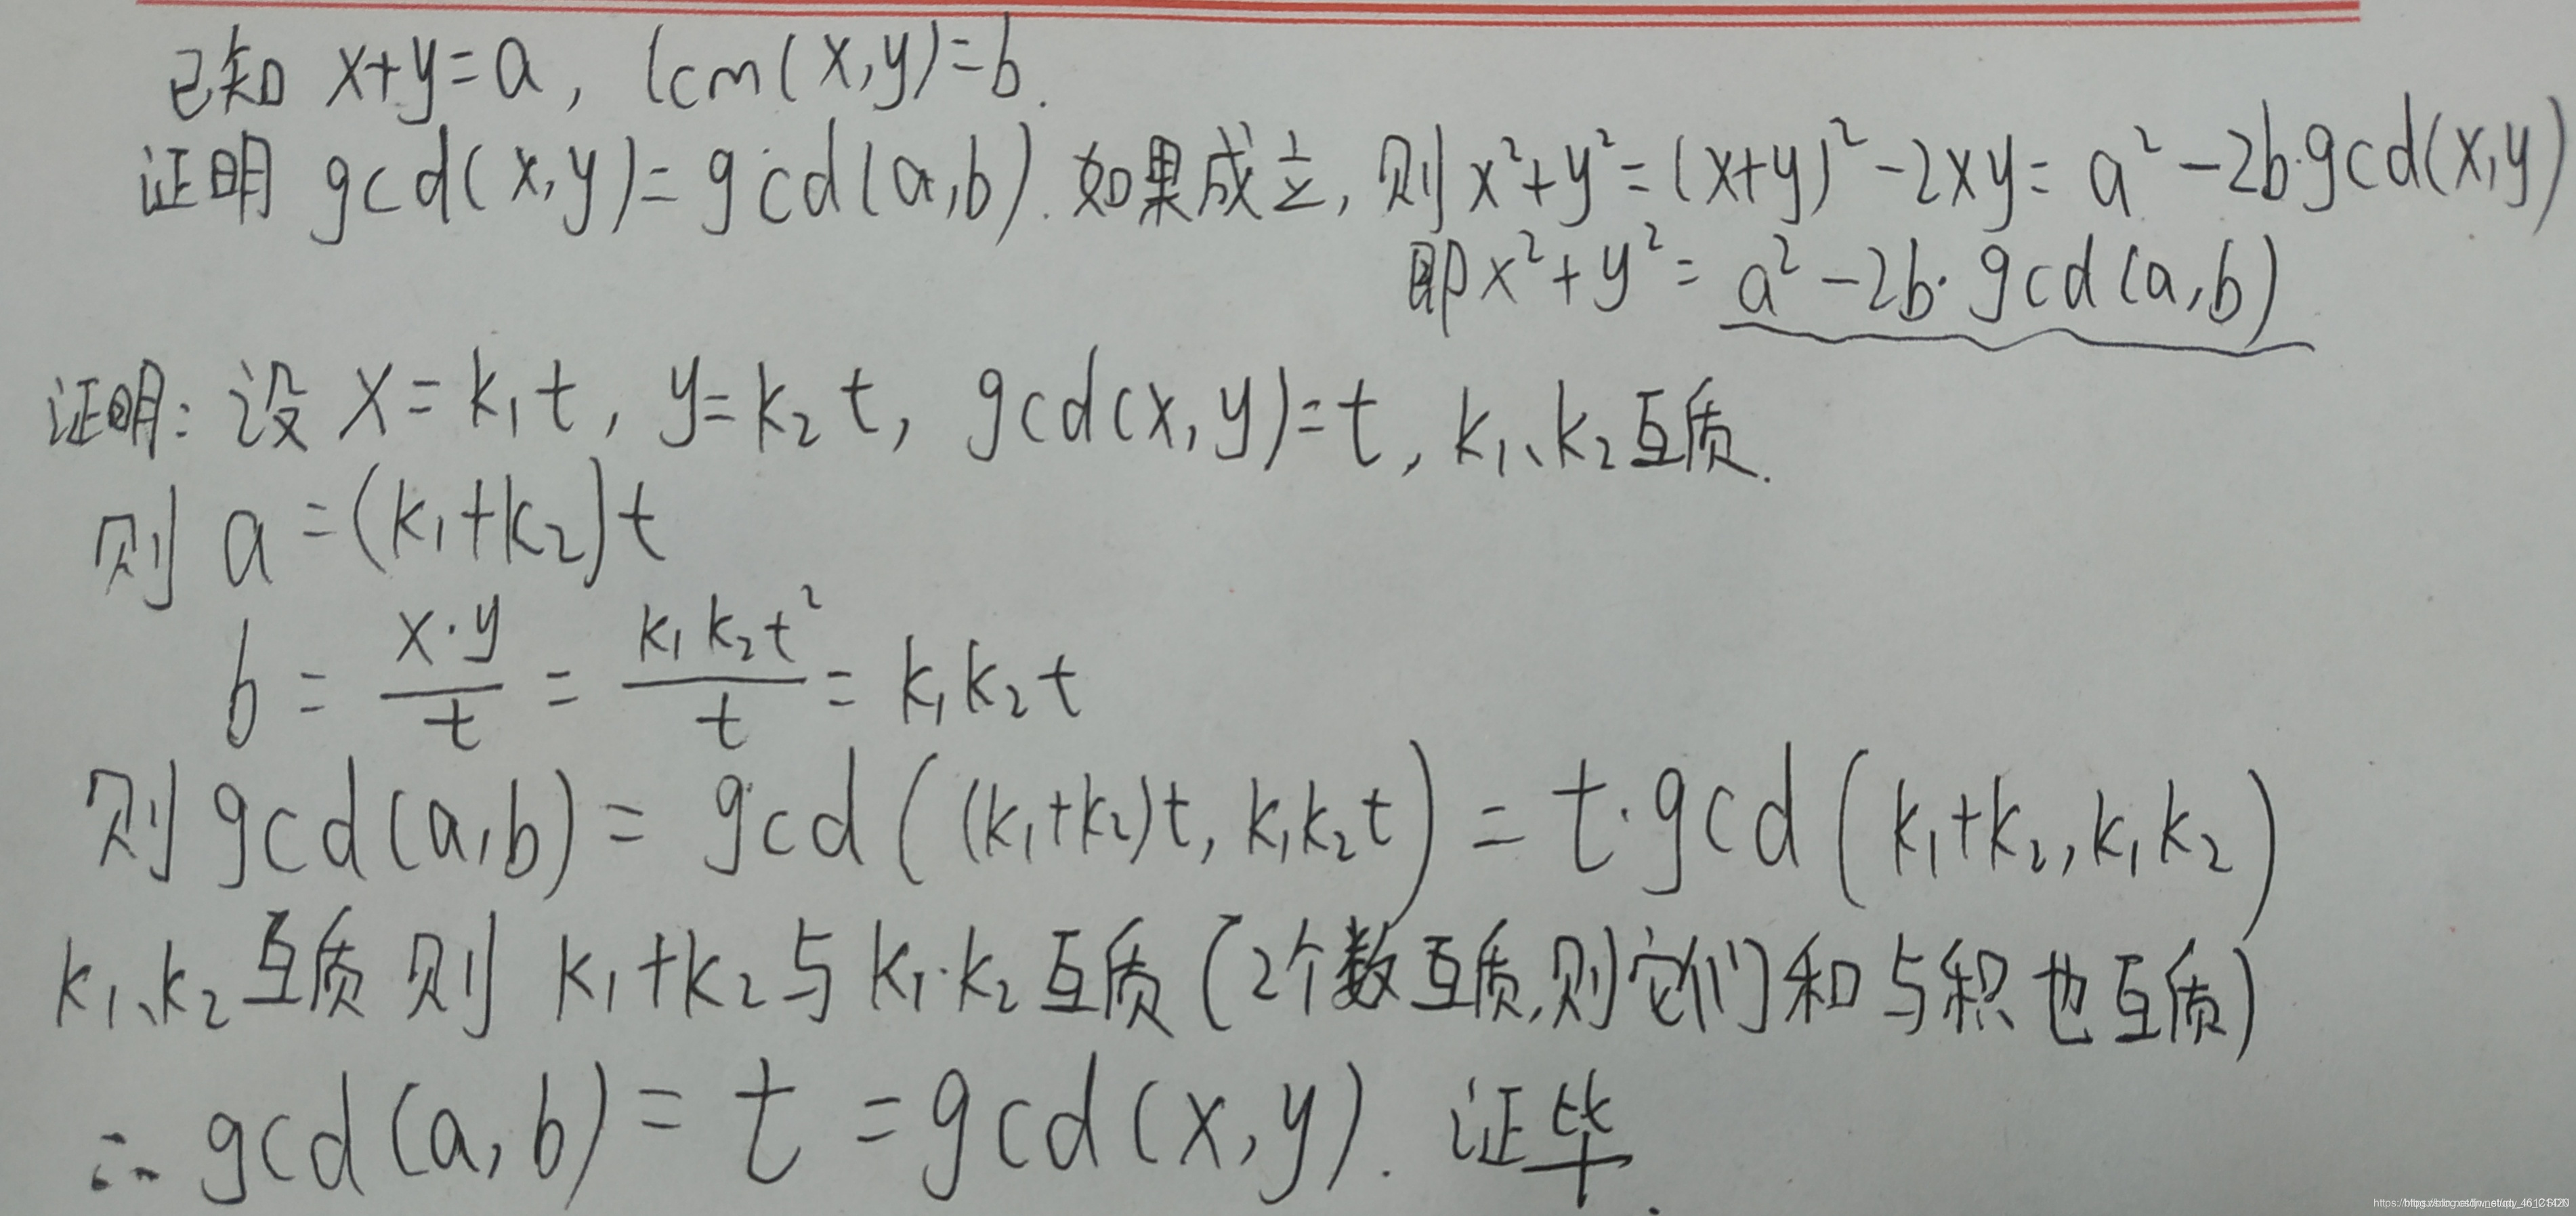 已知 x+y=a, lcm(x,y)=b.
证明 gcd(x,y)=gcd(a,b). 如果成立, 则 x²+y²=(x+y)²-2xy=a²-2b·gcd(x,y)
即 x²+y²=a²-2b·gcd(a,b)
证明: 设 x=k₁t, y=k₂t, gcd(x,y)=t, k₁、k₂互质.
则 a=(k₁+k₂)t
b = x·y/t = k₁k₂t²/t = k₁k₂t
则 gcd(a,b) = gcd((k₁+k₂)t, k₁k₂t) = t·gcd(k₁+k₂, k₁k₂)
k₁、k₂互质 则 k₁+k₂与k₁·k₂互质(2个数互质,则它们和与积也互质)
∴ gcd(a,b) = t = gcd(x,y). 证毕.